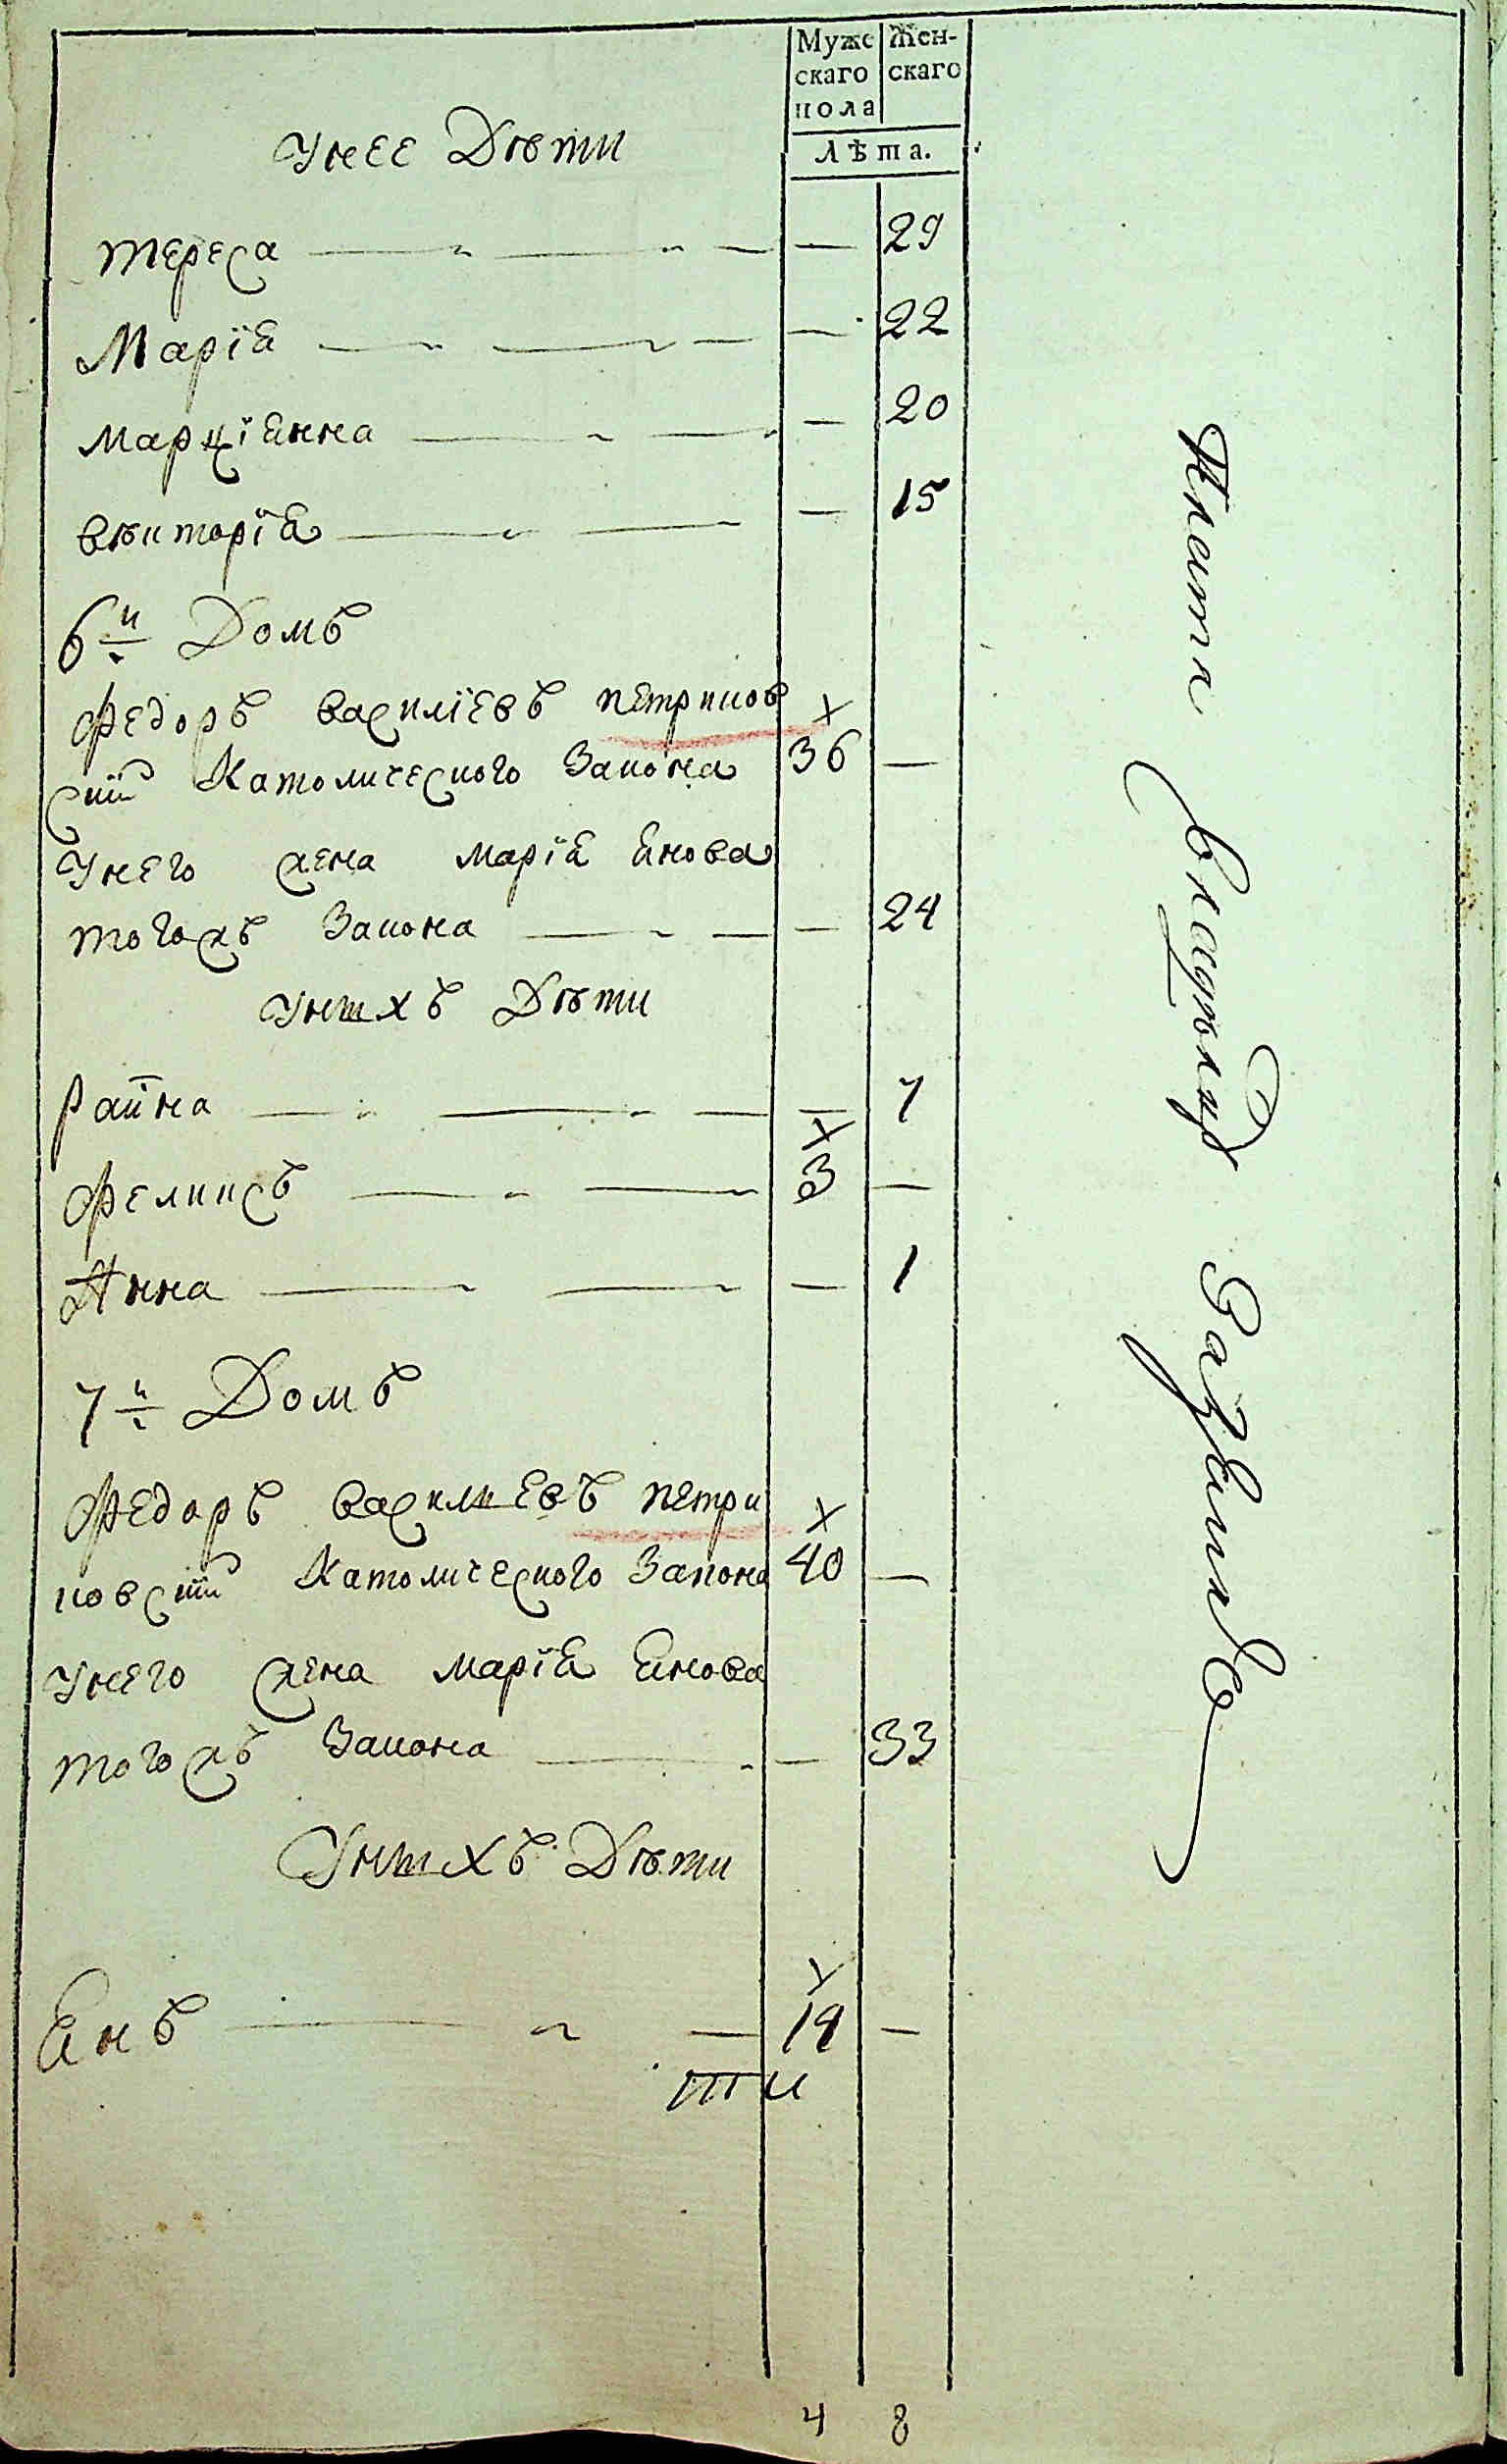 Муже
скаго
пола
Жен-
скаго
Лѣта.
Унее Дѣти
Тереса — — — 29
Марїя — — — 22
Марціянна — — — 20
Вѣкторїя — — — 15
6й Домъ
Федоръ Василїевъ Петриков
скій Католического Закона 36 —
Унего жена Марїя Янова
тогожъ Закона — — — 24
Унихъ Дѣти
Раина — — — 7
Феликсъ — — 3 —
Анна — — — 1
7й Домъ
Федоръ Василиевъ Петри
ковскій Католического Закона 40 —
Унего жена Марїя Янова
тогожъ Закона — — 33
Унихъ Дѣти
Янъ — — 14 —
4 8